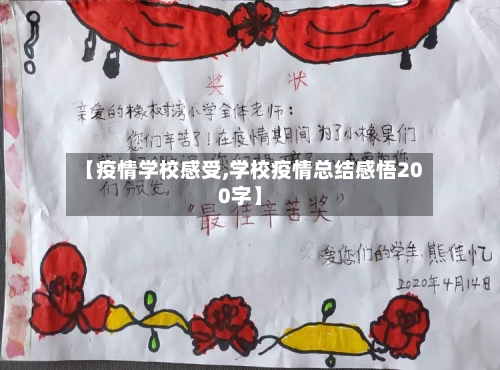 奖 状
亲爱的橡树湾小学全体老师：
您们辛苦了！在疫情期间为了小橡果们
【疫情学校感受,学校疫情总结感悟20
0字】
们颁发。
“最佳辛苦奖”
爱您们的学生：熊佳忆
2020年4月14日